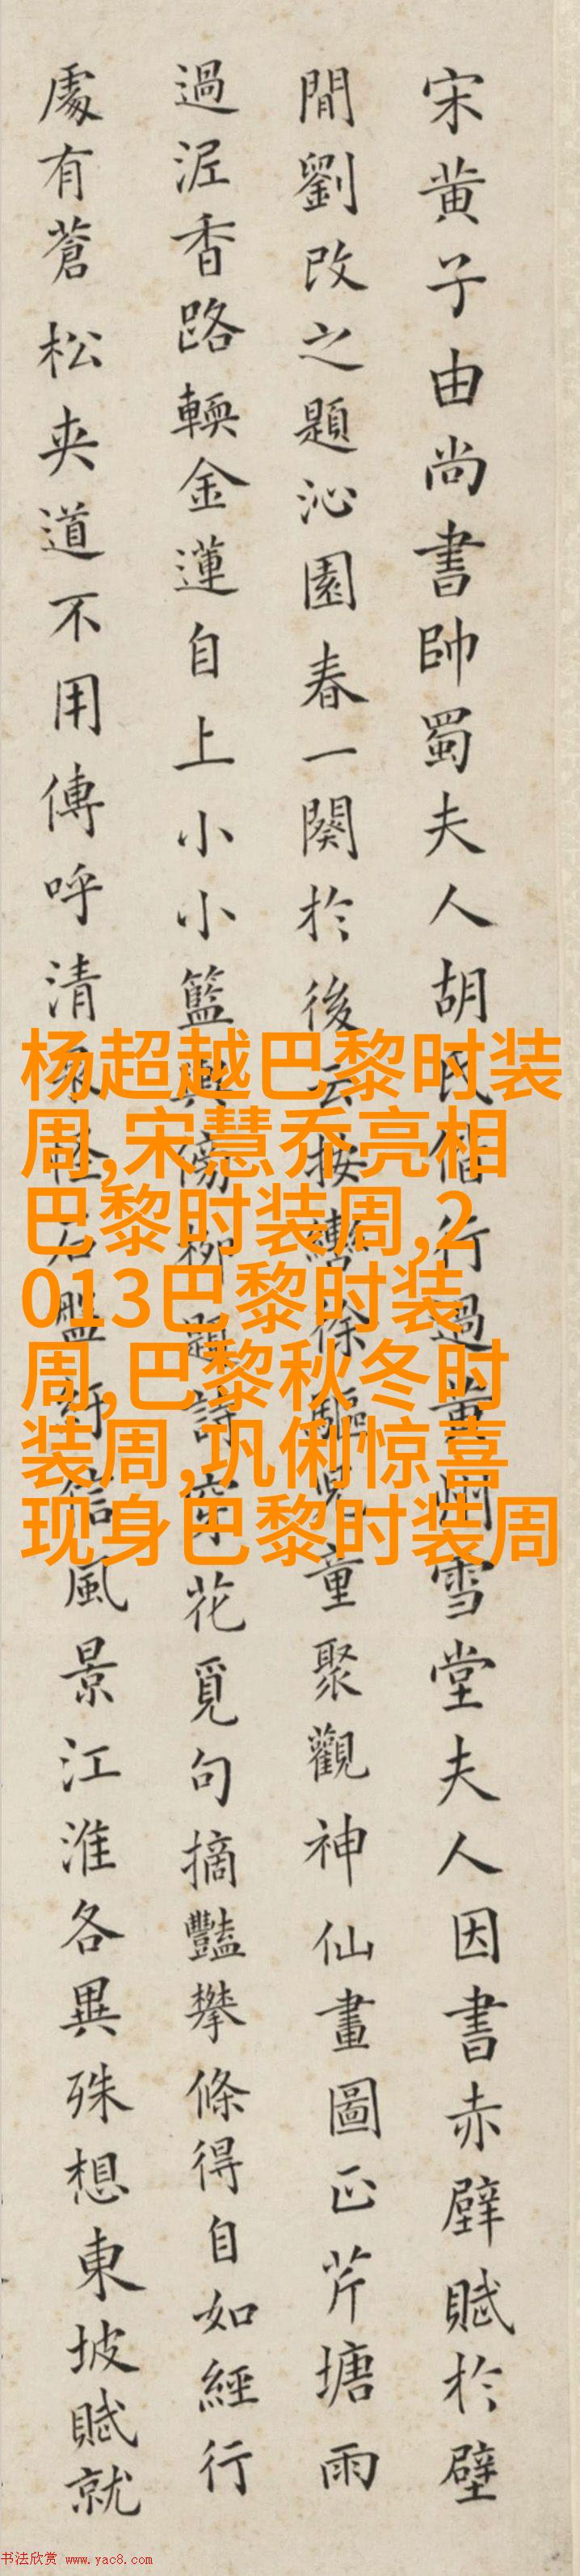 宋黄子由尚書帥蜀夫人胡氏偕行過黄州雪堂夫人因書赤壁賦於壁
間劉改之題沁園春一闋於後云按轡徐驅兒童聚觀神仙畫圖正芹塘雨
過泥香路輭金蓮自上小小籃輿傍柳題詩穿花覓句摘豔攀條得自如經行
處有蒼松夾道不用傳呼清泉怪石盤紆信風景江淮各異殊想東坡賦就
杨超越巴黎时装
周,宋慧乔亮相
巴黎时装周,2
013巴黎时装
周,巴黎秋冬时
装周,巩俐惊喜
现身巴黎时装周
书法欣赏 www.yac8.com